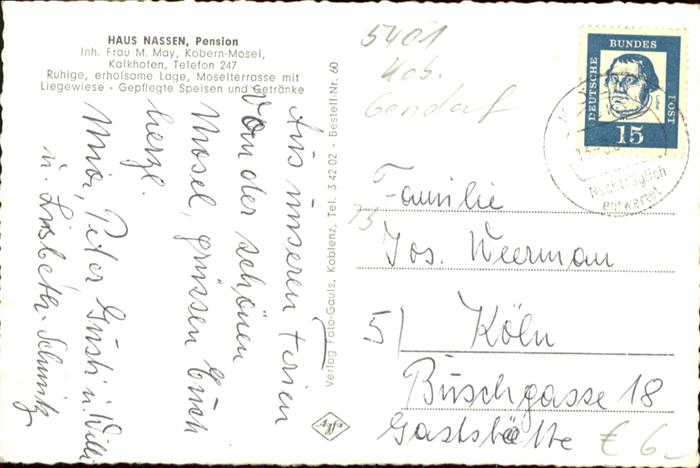 HAUS NASSEN, Pension
Inh. Frau M. May, Kobern-Mosel,
Kalkhofen, Telefon 247
Ruhige, erholsame Lage, Moselterrasse mit
Liegewiese - Gepflegte Speisen und Getränke
Aus unseren Ferien
von der schönen
Mosel, grüssen Euch
herzl.
Mia, Peter Gusti u. Willi
u. Lisbeth. Schmitz
Verlag Foto-Gauls, Koblenz, Tel. 3 42 02 - Bestell-Nr. 60
Agfa
5401
Kob.
Gondorf
DEUTSCHE
BUNDES
POST
15
Nachträglich
entwertet
Familie
Jos. Weerman
5/ Köln
Buschgasse 18
Gaststätte
€ 6-